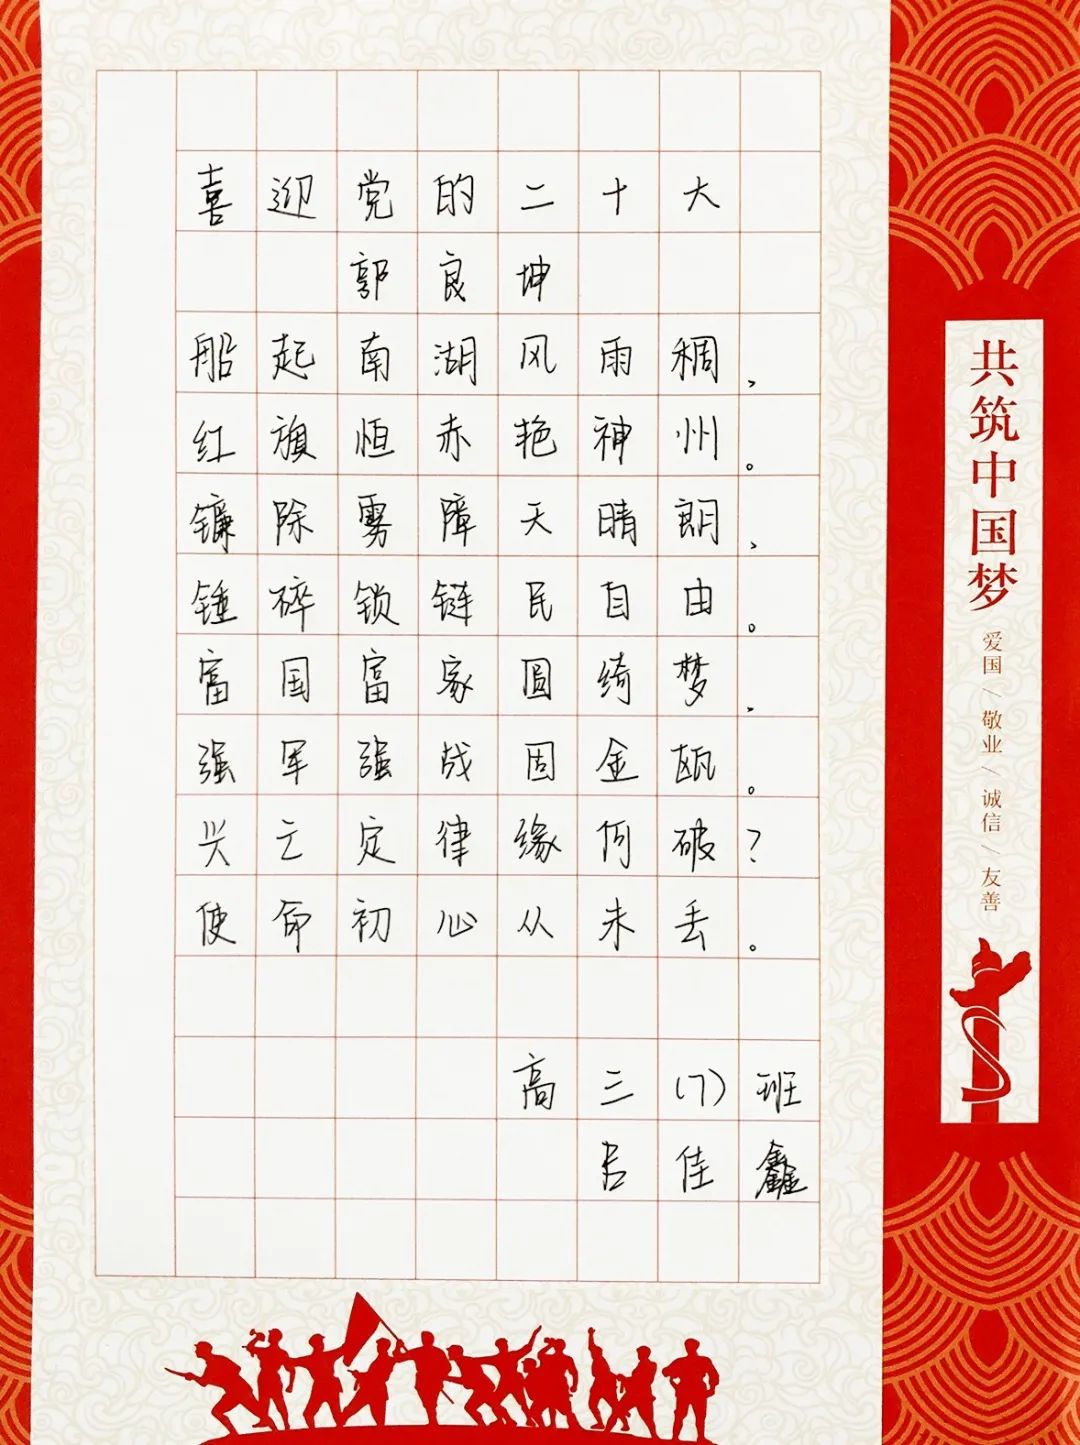 喜迎党的二十大
郭良坤
船起南湖风雨稠，
红旗恒赤艳神州。
镰除雾障天晴朗，
锤碎锁链民自由。
富国富家圆绮梦，
强军强战固金瓯。
兴亡定律缘何破？
使命初心从未丢。
高三(7)班
吕佳鑫
共筑中国梦
爱国/敬业/诚信/友善